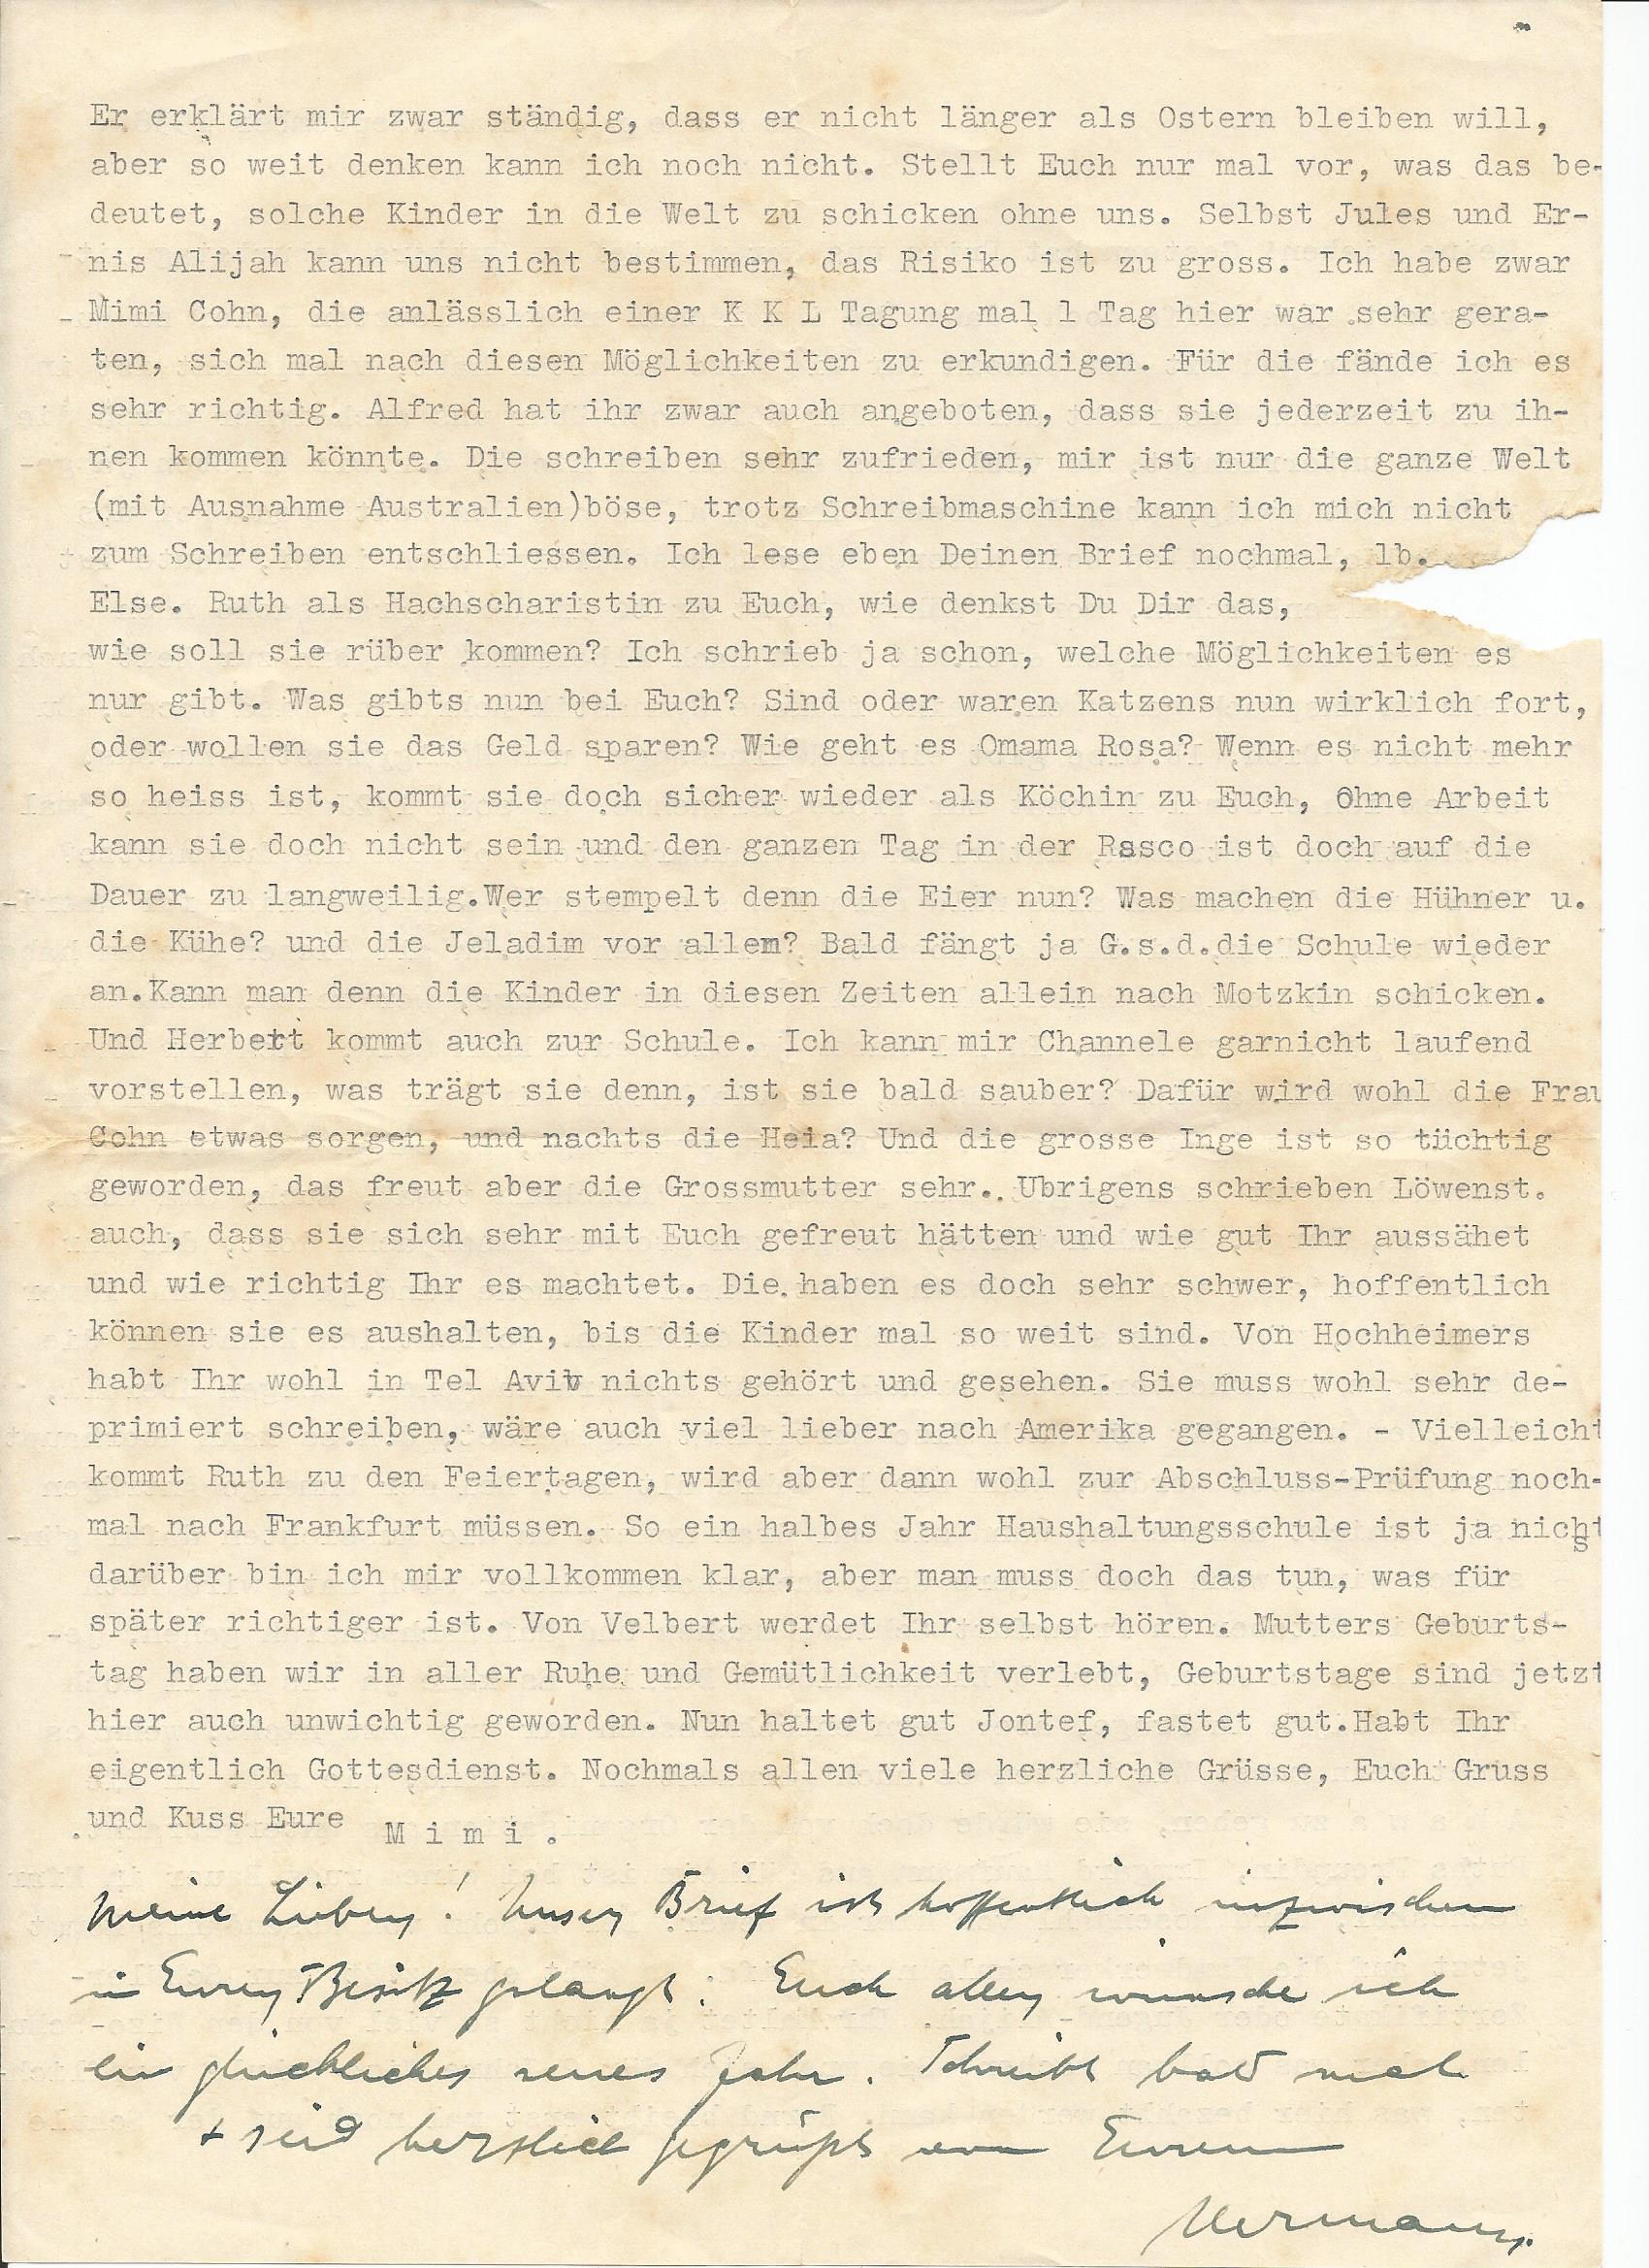 Er erklärt mir zwar ständig, dass er nicht länger als Ostern bleiben will,
aber so weit denken kann ich noch nicht. Stellt Euch nur mal vor, was das be-
deutet, solche Kinder in die Welt zu schicken ohne uns. Selbst Jules und Er-
nis Alijah kann uns nicht bestimmen, das Risiko ist zu gross. Ich habe zwar
Mimi Cohn, die anlässlich einer K K L Tagung mal 1 Tag hier war sehr gera-
ten, sich mal nach diesen Möglichkeiten zu erkundigen. Für die fände ich es
sehr richtig. Alfred hat ihr zwar auch angeboten, dass sie jederzeit zu ih-
nen kommen könnte. Die schreiben sehr zufrieden, mir ist nur die ganze Welt
(mit Ausnahme Australien)böse, trotz Schreibmaschine kann ich mich nicht
zum Schreiben entschliessen. Ich lese eben Deinen Brief nochmal, lb.
Else. Ruth als Hachscharistin zu Euch, wie denkst Du Dir das,
wie soll sie rüber kommen? Ich schrieb ja schon, welche Möglichkeiten es
nur gibt. Was gibts nun bei Euch? Sind oder waren Katzens nun wirklich fort,
oder wollen sie das Geld sparen? Wie geht es Omama Rosa? Wenn es nicht mehr
so heiss ist, kommt sie doch sicher wieder als Köchin zu Euch, Ohne Arbeit
kann sie doch nicht sein und den ganzen Tag in der Rasco ist doch auf die
Dauer zu langweilig.Wer stempelt denn die Eier nun? Was machen die Hühner u.
die Kühe? und die Jeladim vor allem? Bald fängt ja G.s.d.die Schule wieder
an.Kann man denn die Kinder in diesen Zeiten allein nach Motzkin schicken.
Und Herbert kommt auch zur Schule. Ich kann mir Channele garnicht laufend
vorstellen, was trägt sie denn, ist sie bald sauber? Dafür wird wohl die Frau
Cohn etwas sorgen, und nachts die Heia? Und die grosse Inge ist so tüchtig
geworden, das freut aber die Grossmutter sehr.. Ubrigens schrieben Löwenst.
auch, dass sie sich sehr mit Euch gefreut hätten und wie gut Ihr aussähet
und wie richtig Ihr es machtet. Die haben es doch sehr schwer, hoffentlich
können sie es aushalten, bis die Kinder mal so weit sind. Von Hochheimers
habt Ihr wohl in Tel Aviv nichts gehört und gesehen. Sie muss wohl sehr de-
primiert schreiben, wäre auch viel lieber nach Amerika gegangen. - Vielleicht
kommt Ruth zu den Feiertagen, wird aber dann wohl zur Abschluss-Prüfung noch-
mal nach Frankfurt müssen. So ein halbes Jahr Haushaltungsschule ist ja nichts
darüber bin ich mir vollkommen klar, aber man muss doch das tun, was für
später richtiger ist. Von Velbert werdet Ihr selbst hören. Mutters Geburts-
tag haben wir in aller Ruhe und Gemütlichkeit verlebt, Geburtstage sind jetzt
hier auch unwichtig geworden. Nun haltet gut Jontef, fastet gut.Habt Ihr
eigentlich Gottesdienst. Nochmals allen viele herzliche Grüsse, Euch Gruss
und Kuss Eure M i m i .
Meine Lieben! Unser Brief ist hoffentlich inzwischen
in Euren Besitz gelangt. Euch allen wünsche ich
ein glückliches neues Jahr. Schreibt bald mal
+ seid herzlich gegrüßt von Eurem
Hermann.